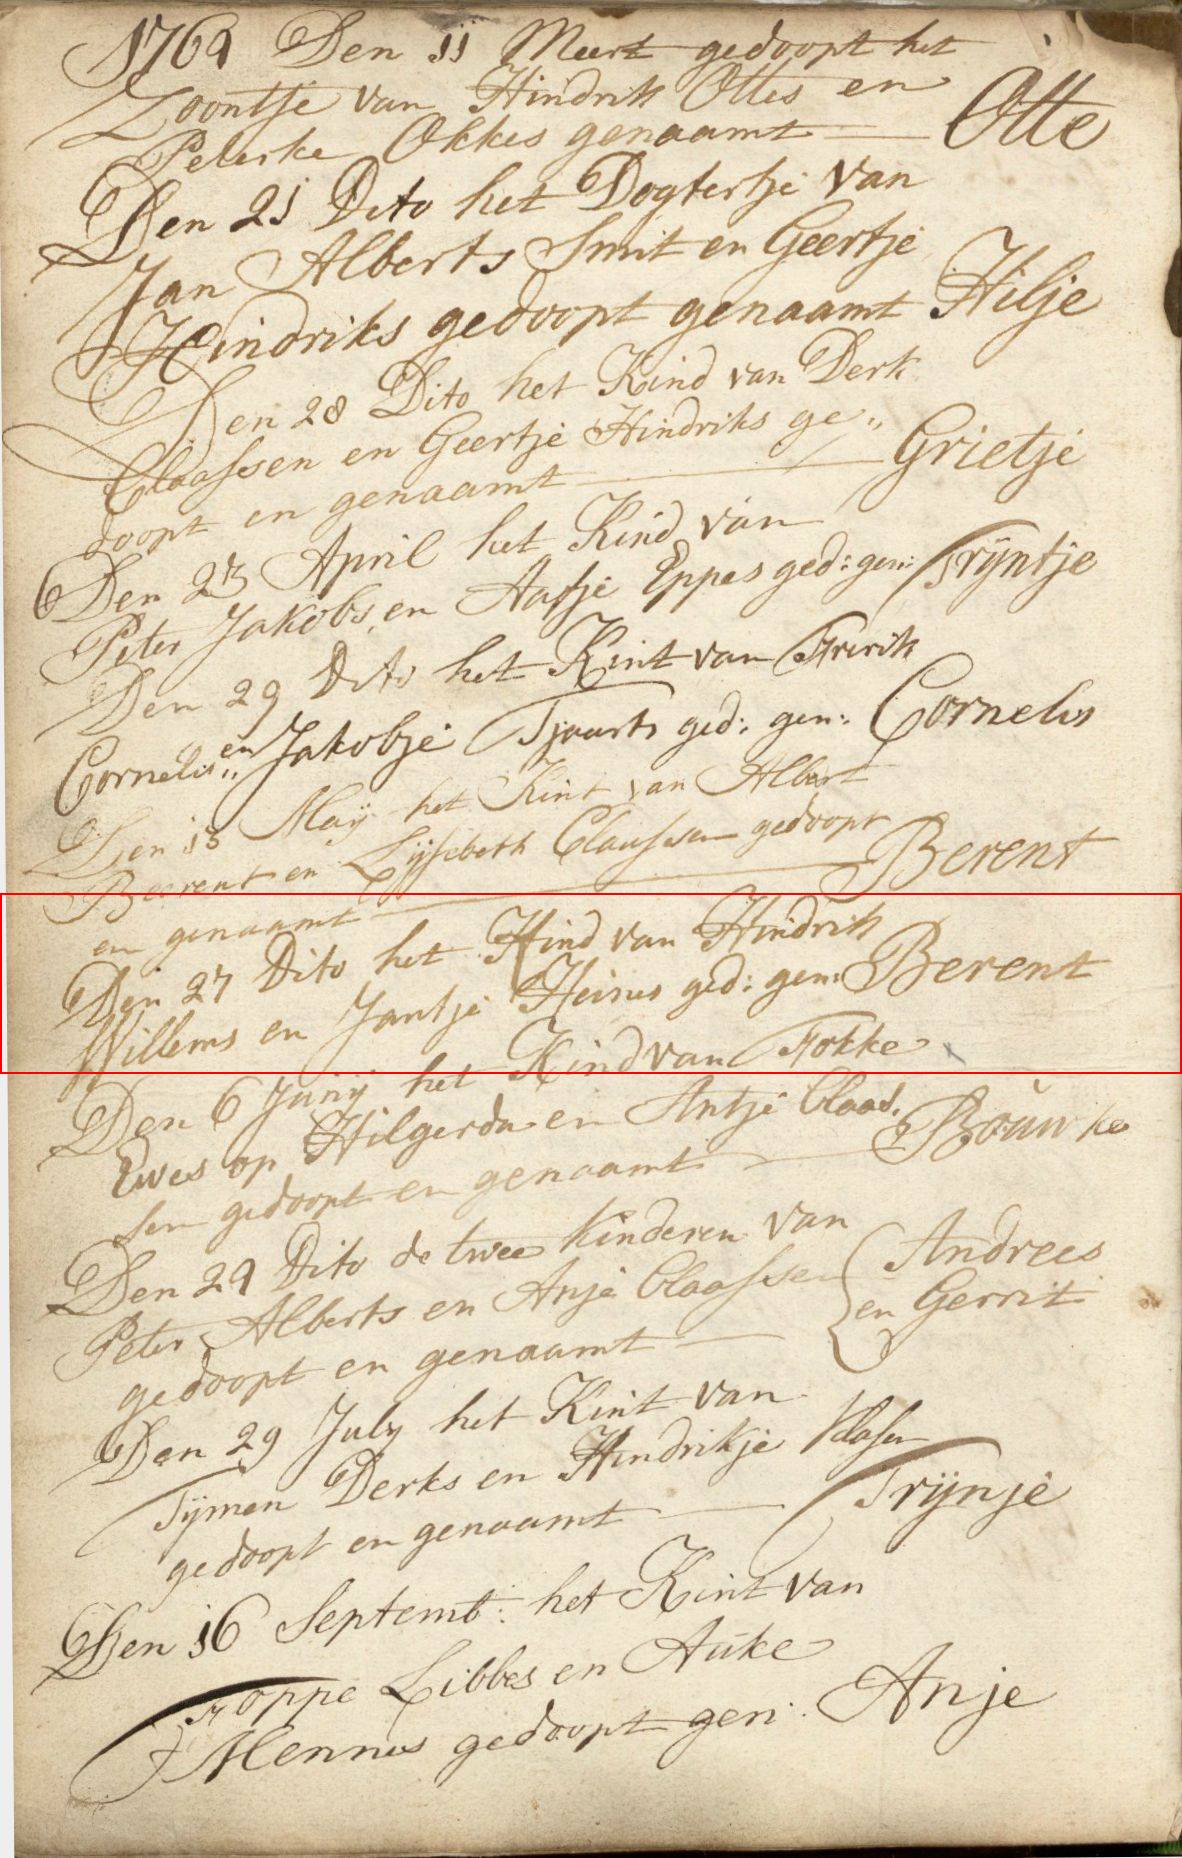 1769 Den 11 Meert gedoopt het
Zoontje van Hindrik Ottes en
Peterke Okkes genaamt Otte
Den 21 Dito het Dogtertje van
Jan Alberts Smit en Geertje
Heindriks gedoopt genaamt Hilje
Den 28 Dito het Kind van Derk
Claassen en Geertje Hindriks ge„
doopt en genaamt Grietje
Den 23 April het Kind van
Peter Jakobs en Aafje Eppes ged: gen: Trÿntje
Den 29 Dito het Kint van Frerik
Cornelis„ en Jakobje Tjaarts ged: gen: Cornelis
Den 13 Maij het Kint van Albert
Beerent en Lijsebeth Claassen gedoopt
en genaamt Berent
Den 27 Dito het Kind van Hindrik
Willems en Jantje Heines ged: gen: Berent
Den 6 Junij het Kind van Fokke
Ewes op Hilgerda en Antje Claas
sen gedoopt en genaamt Bouwke
Den 29 Dito de twee Kinderen van
Peter Alberts en Anje Claassen Andrees
gedoopt en genaamt en Gerrit
Den 29 July het Kint van
Tijmen Derks en Hindrikje Klasen
gedoopt en genaamt Trijnje
Den 16 Septemb: het Kint van
Foppe Libbes en Auke
Mennes gedoopt gen: Anje